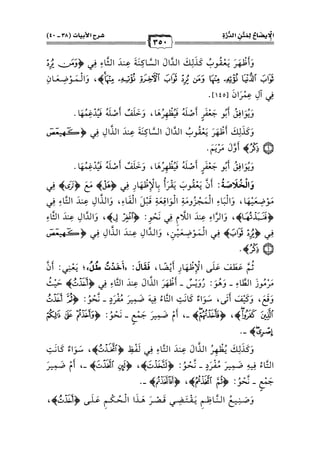 الإيضاح لمتن الدرة
شرح الأبيات (٣٨ - ٤٠)
٣٥٠
وَأَظْهَرَ يَعْقُوبُ كَذَلِكَ الدَّالَ السَّاكِنَةَ عِنْدَ الثَّاءِ فِي ﴿وَمَن يُرِدْ
ثَوَابَ الدُّنْيَا نُؤْتِهِ مِنْهَا وَمَن يُرِدْ ثَوَابَ الْآخِرَةِ نُؤْتِهِ مِنْهَا﴾، وَالْمَوْضِعَانِ
فِي آلِ عِمْرَانَ [١٤٥].
وَيُوَافِقُ أَبُو جَعْفَرٍ أَصْلَهُ فَيُظْهِرُهَا، وَخَلَفٌ أَصْلَهُ فَيُدْغِمُهَا.
وَكَذَلِكَ أَظْهَرَ يَعْقُوبُ الدَّالَ السَّاكِنَةَ عِنْدَ الذَّالِ فِي ﴿كهيعص
ذِكْرُ﴾ أَوَّلَ مَرْيَمَ.
وَيُوَافِقُ أَبُو جَعْفَرٍ أَصْلَهُ فَيُظْهِرُهَا، وَخَلَفٌ أَصْلَهُ فَيُدْغِمُهَا.
وَالْخُلَاصَةُ: أَنَّ يَعْقُوبَ يَقْرَأُ بِالْإِظْهَارِ فِي ﴿هَلْ﴾ مَعَ ﴿تَرَى﴾ فِي
مَوْضِعَيْهَا، وَالْبَاءِ الْمَجْزُومَةِ الْوَاقِعَةِ قَبْلَ الْفَاءِ، وَالذَّالِ عِنْدَ التَّاءِ فِي
﴿فَنَبَذْتُهَا﴾، وَالرَّاءِ عِنْدَ اللَّامِ فِي نَحْوِ: ﴿اغْفِرْ لِي﴾، وَالدَّالِ عِنْدَ الثَّاءِ
فِي ﴿يُرِدْ ثَوَابَ﴾ فِي الْمَوْضِعَيْنِ، وَالدَّالِ عِنْدَ الذَّالِ فِي ﴿كهيعص
ذِكْرُ﴾.
ثُمَّ عَطَفَ عَلَى الْإِظْهَارِ أَيْضًا، فَقَالَ: «أَخَذْتُ طُلْ»؛ يَعْنِي: أَنَّ
مَرْمُوزَ الطَّاءِ - وَهُوَ: رُوَيْسٌ - أَظْهَرَ الذَّالَ عِنْدَ التَّاءِ فِي ﴿أَخَذْتُ﴾ حَيْثُ
وَقَعَ، وَكَيْفَ أَتَى، سَوَاءٌ كَانَتِ التَّاءُ فِيهِ ضَمِيرَ مُفْرَدٍ - نَحْوُ: ﴿ثُمَّ أَخَذْتُ
الَّذِينَ كَفَرُوا﴾، ﴿فَأَخَذْتُهُمْ﴾ -، أَمْ ضَمِيرَ جَمْعٍ - نَحْوَ: ﴿وَأَخَذْتُمْ عَلَى ذَلِكُمْ
إِصْرِي﴾ -.
وَكَذَلِكَ يُظْهِرُ الذَّالَ عِنْدَ التَّاءِ فِي لَفْظِ ﴿اتَّخَذْتُ﴾، سَوَاءٌ كَانَتِ
التَّاءُ فِيهِ ضَمِيرَ مُفْرَدٍ - نَحْوُ: ﴿لَتَّخَذْتَ﴾، ﴿لَئِنِ اتَّخَذْتَ﴾ -، أَمْ ضَمِيرَ
جَمْعٍ - نَحْوُ: ﴿ثُمَّ اتَّخَذْتُمُ﴾، ﴿أَفَاتَّخَذْتُم﴾ -.
وَصَنِيعُ النَّاظِمِ يَقْتَضِي قَصْرَ هَذَا الْحُكْمِ عَلَى ﴿أَخَذْتُ﴾،